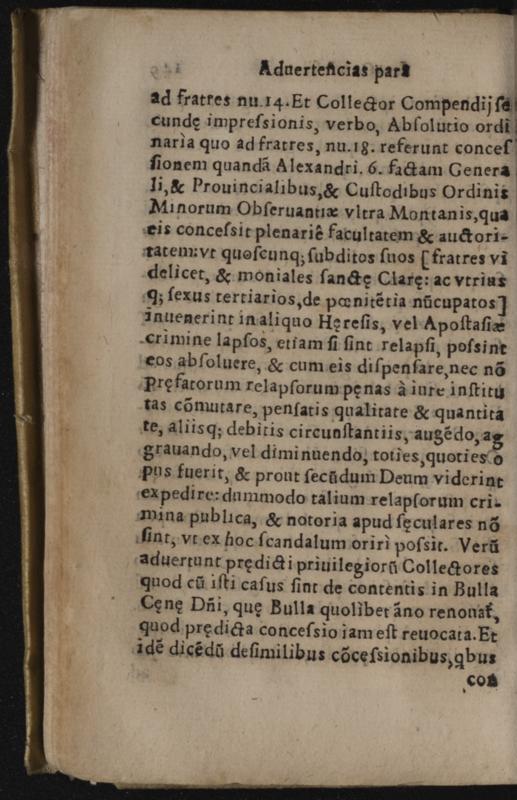 Aduertencias para
ad fratres nu.14.Et Collector Compendij se
cundę impreſsionis, verbo, Abſolutio ordi
naria quo ad fratres, nu.18. referunt conceſ
ſionem quandã Alexandri. 6. factam Genera
li,& Prouincialibus,& Cuſtodibus Ordinis
Minorum Obſeruantiæ vltra Montanis,qua
eis conceſsit plenariẽ facultatem & auctori-
tatem:vt quoſcunq; ſubditos ſuos [fratres vi
delicet, & moniales ſanctę Clarę: ac vtrius
q; ſexus tertiarios,de pœnitẽtia nũcupatos]
inuenerint in aliquo Hęreſis, vel Apoſtaſiæ
crimine lapſos, etiam ſi ſint relapſi, poſsint
eos abſoluere, & cum eis diſpenſare,nec nõ
pręfatorum relapſorum pęnas à iure inſtitu
tas cõmutare, penſatis qualitate & quantita
te, aliisq; debitis circunſtantiis, augẽdo, ag
grauando, vel diminuendo, toties,quoties o
pus fuerit, & prout ſecũdum Deum viderint
expedire: dummodo talium relapſorum cri-
mina publica, & notoria apud ſęculares nõ
ſint, vt ex hoc ſcandalum oriri poſsit. Verũ
aduertunt prędicti priuilegiorũ Collectores
quod cũ iſti caſus ſint de contentis in Bulla
Cęnę Dñi, quę Bulla quolibet ãno renouat̃,
quod prędicta conceſsio iam eſt reuocata.Et
idẽ dicẽdũ deſimilibus cõceſsionibus,qbus
con